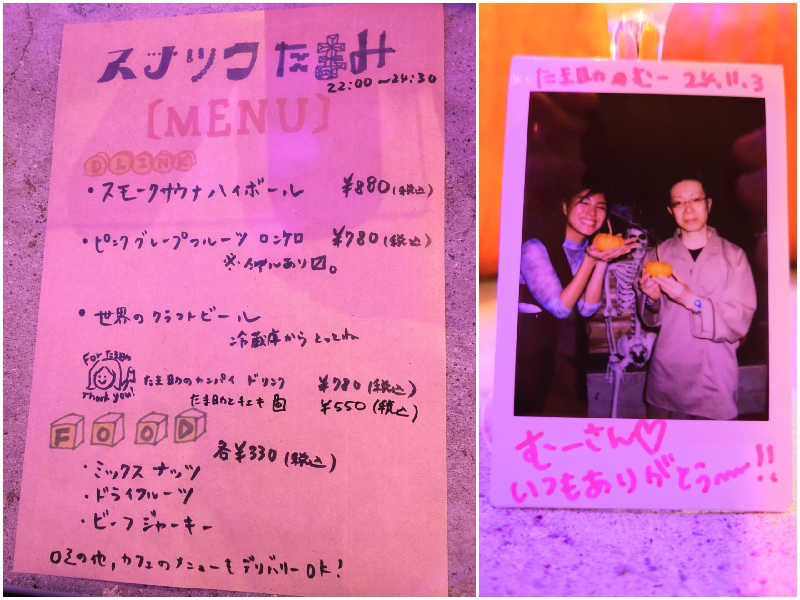 スナック たま み
22:00〜24:30
[MENU]
DLINK
・スモークサウナハイボール ¥880(税込)
・ピンクグレープフルーツ ロンケロ ¥780(税込)
※ あり
・世界のクラフトビール
冷蔵庫から とってね
For たま
Thank you!
たま のカンパイ ドリンク ¥780(税込)
たま とチェキ ¥550(税込)
FOOD
各¥330(税込)
・ミックス ナッツ
・ドライフルーツ
・ビーフ ジャーキー
その他,カフェのメニューもデリバリーOK!
たま むー 24.11.3
むーさん♡
いつもありがとう〜!!